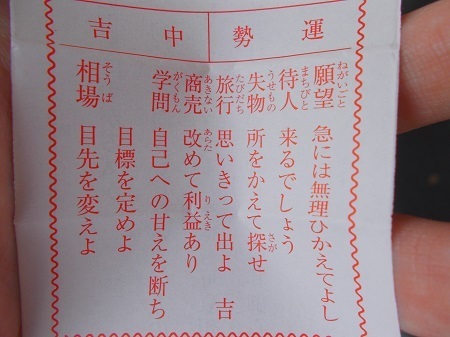 運勢 中吉
願望 急には無理ひかえてよし
待人 来るでしょう
失物 所をかえて探せ
旅行 思いきって出よ 吉
商売 改めて利益あり
学問 自己への甘えを断ち
目標を定めよ
相場 目先を変えよ